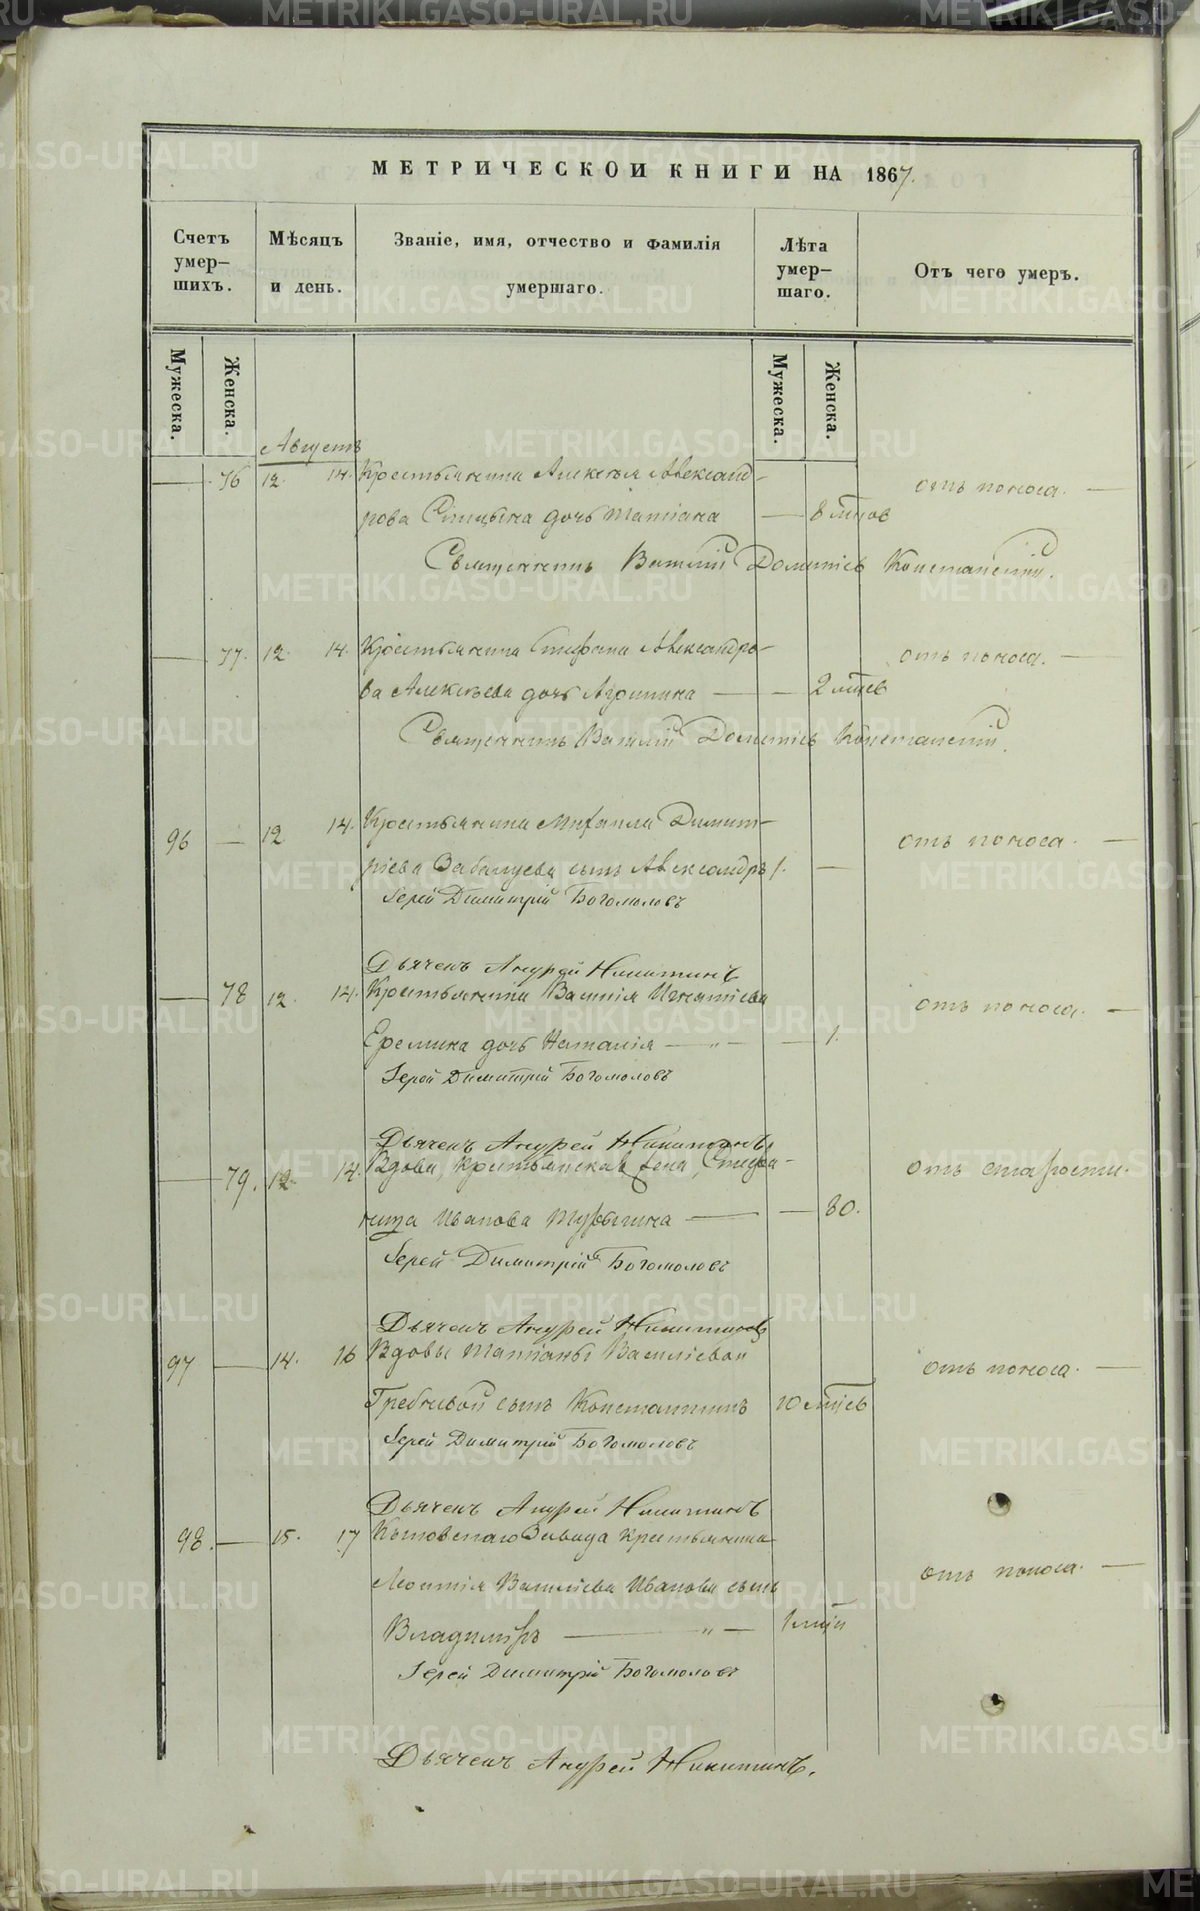 МЕТРИЧЕСКОЙ КНИГИ НА 1867.
Счетъ умер- шихъ.
Мѣсяцъ и день.
Званіе, имя, отчество и фамилія умершаго.
Лѣта умер- шаго.
Отъ чего умеръ.
Мужеска.
Женска.
Мужеска.
Женска.
Августъ
— 76 12. 14. Крестьянина Алексѣя Александ-
рова Спицына дочь Татіана — 8 мцов отъ поноса. —
Священникъ Василій Конставскій.
— 77. 12. 14. Крестьянина Стефана Александро-
ва Алексѣева дочь Агрипина — — 2 мцев отъ поноса. —
Священникъ Василій Конставскій.
96 — 12 14. Крестьянина Михаила Димит-
ріева сынъ Александръ 1. — отъ поноса. —
Іерей Димитрій Богомоловъ
Дьячекъ Андрей Никитинъ
— 78 12. 14. Крестьянина Василія Игнатіева
Еремина дочь Наталія — „ — — 1. отъ поноса. —
Іерей Димитрій Богомоловъ
Дьячекъ Андрей Никитинъ
— 79. 12. 14. Вдова, крестьянская жена, Стефа-
нида Иванова Турыгина — — 80. отъ старости.
Іерей Димитрій Богомоловъ
Дьячекъ Андрей Никитинъ
97 — 14. 16 Вдовы Татіаны Василіевой
Гребневой сынъ Константинъ 10 мцевъ отъ поноса. —
Іерей Димитрій Богомоловъ
Дьячекъ Андрей Никитинъ
98. — 15. 17 Завода крестьянина
Леонтія Василіева Иванова сынъ
Владиміръ — „ — отъ поноса. —
Іерей Димитрій Богомоловъ
Дьячекъ Андрей Никитинъ.
METRIKI.GASO-URAL.RU